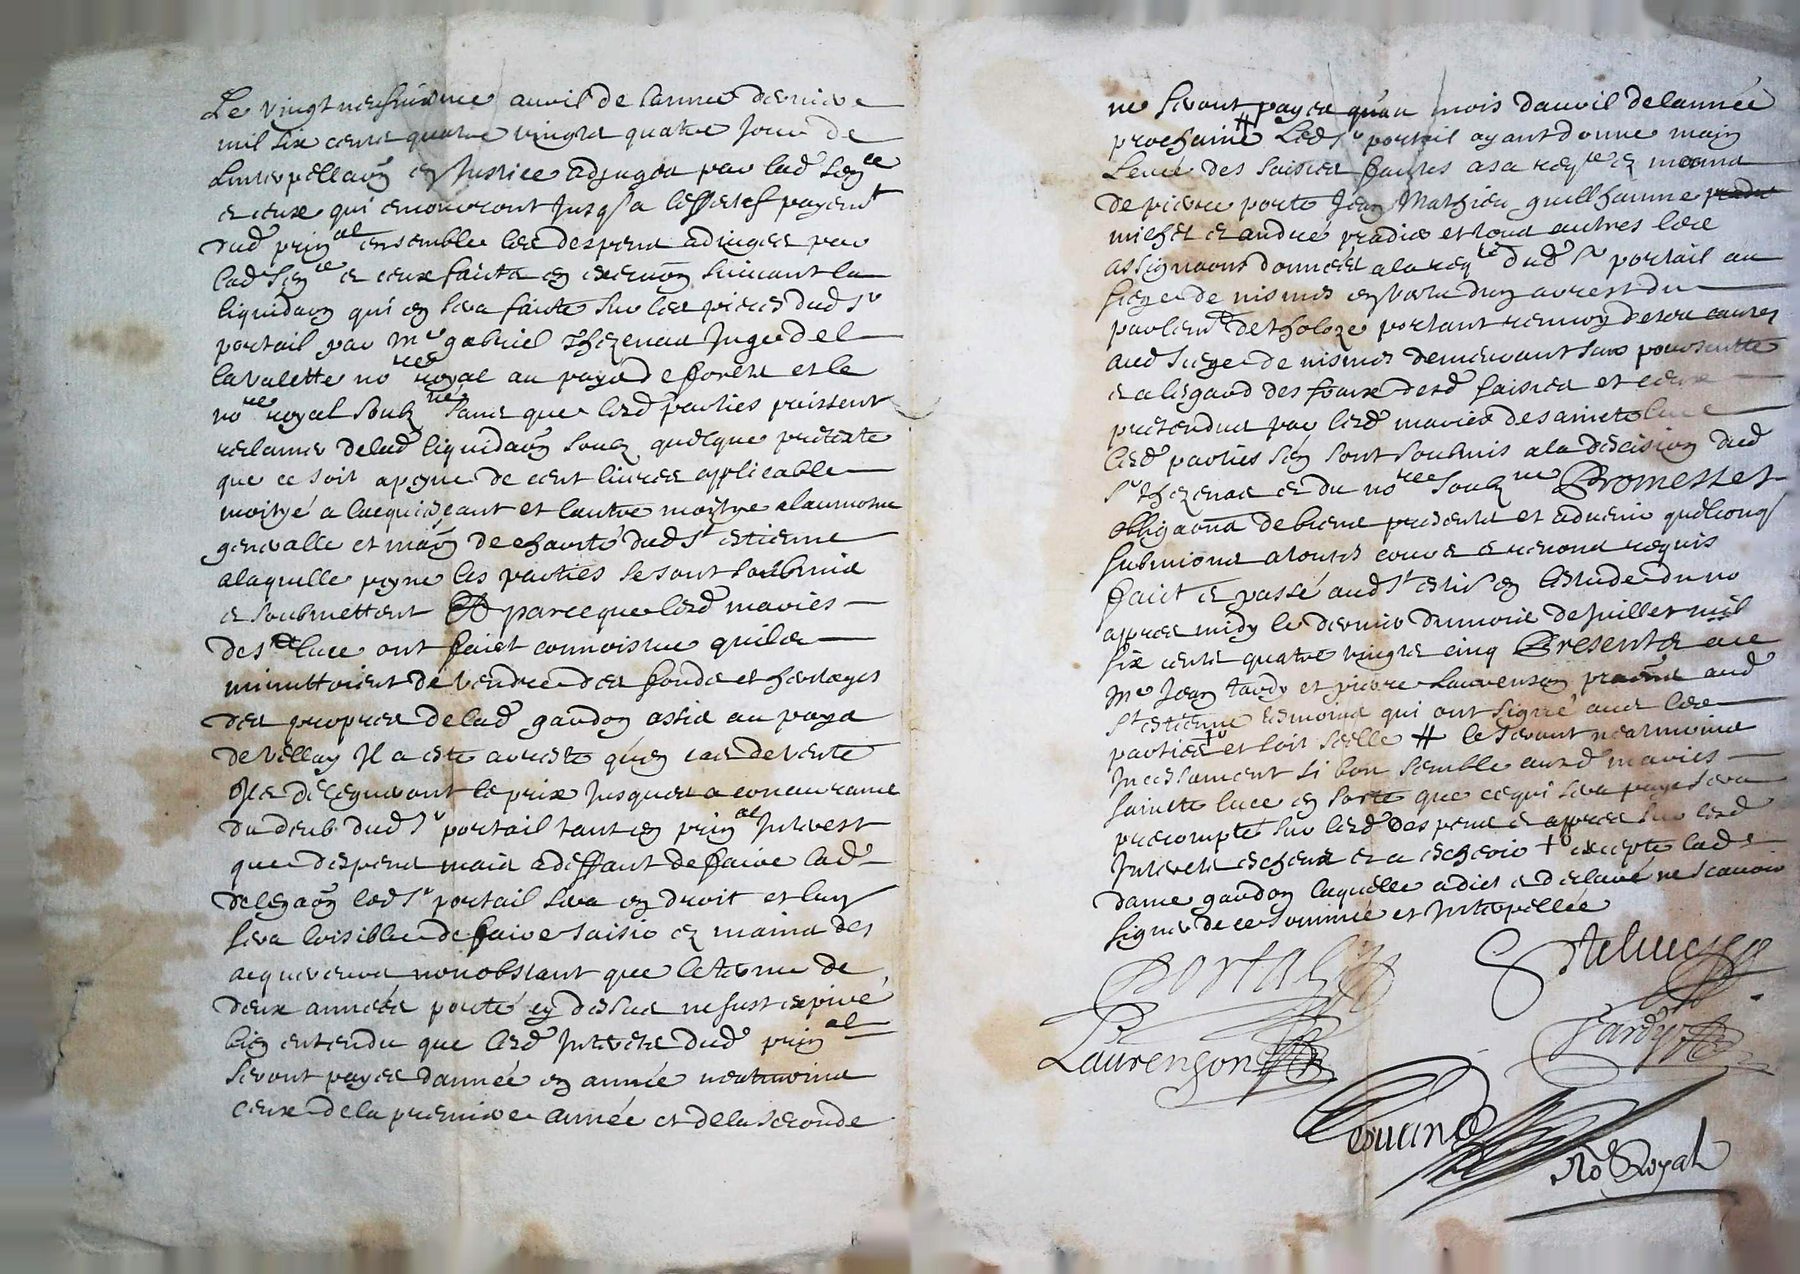 Le vingt neufviesme avril de lannee derniere
mil six cents quatre vingts quatre jour de
linterpellaõn en justice adjugés par lad sence
et ceux qui encourront jusqsa leffectif payemt
dud prinal ensemble les despens adjuges par
lad sence et ceux faits en execuõn suivant la
liquidaõn qui en sera faite sur les pieces dud sr
portail par me gabriel thezenas juge del
lavalette nore royal au pays de forestz et le
nore royal soubzné sans que lesd parties puissent
reclamer de lad liquidaõn soubz quelque pretexte
que ce soit a peyne de cent livres applicable
moityé a lacquiesçant et lautre moitye alaumosne
generalle et maõn de charité dud st estienne
a laquelle peyne les parties se sont soubmis
et soubmettent Et parceque lesd mariés
de ste luce ont faict connoistre quils
de vendre des fonds et heritages
des propres de lad gaudon assis au pays
de vellay Il a esté arresté quen cas de vente
Ils le prix jusques a concurrance
du deub dud sr portail tant en prinal interest
que despens mais a deffaut de faire lad
delegaõn led sr portail sera en droit et luy
sera loisible de faire saisir ez mains des
acquereurs nonobstant que le terme de
deux années porté cy dessus ne fust expiré
bien entendu que lesd interets dud prinal
seront payes dannée en année neantmoins
ceux de la premiere année et de la seconde
ne seront payes quau mois davril de lannée
prochaine # Led sr portail ayant donne main
levée des saisies faites a sa reqte ez mains
de pierre porte Jean Mathieu guilhaume pradie
michel et andré pradier et tous autres les
assignaõns données a la reqte dud sr portail au
siege de nismes en vertu dun arrest du
parlemt de tholoze portant renvoy des causes
aud siege de nismes demeurant sans poursuitte
et a legard des fraix desd saisies et ceux
pretendus par lesd mariés de sainte luce
lesd parties sen sont soubmis a la decision dud
sr thezenas et du nore soubzne Promesses
obligaõns de biens presents et advenir quelconqs
submions a toutes cours et renons requis
faict et passé aud st estne en lestude du no
appres midy le dernier du mois de juillet mil
six cents quatre vingts cinq Presents a ce
me Jean tardy et pierre Laurenson aud
st estienne tesmoins qui ont signé avec les
parties +o et soit scelle # le seront neantmoins
incessament si bon semble ausd mariés
sainte luce en sorte que ce qui sera payé sera
precompté sur lesd despens et appres sur lesd
interets escheus et a escheoir +o excepté lad
dame gaudon laquelle a dict et declaré ne scavoir
signer de ce sommée et interpellée
Portail
Steluce
Laurenson
Tardy
No Royal